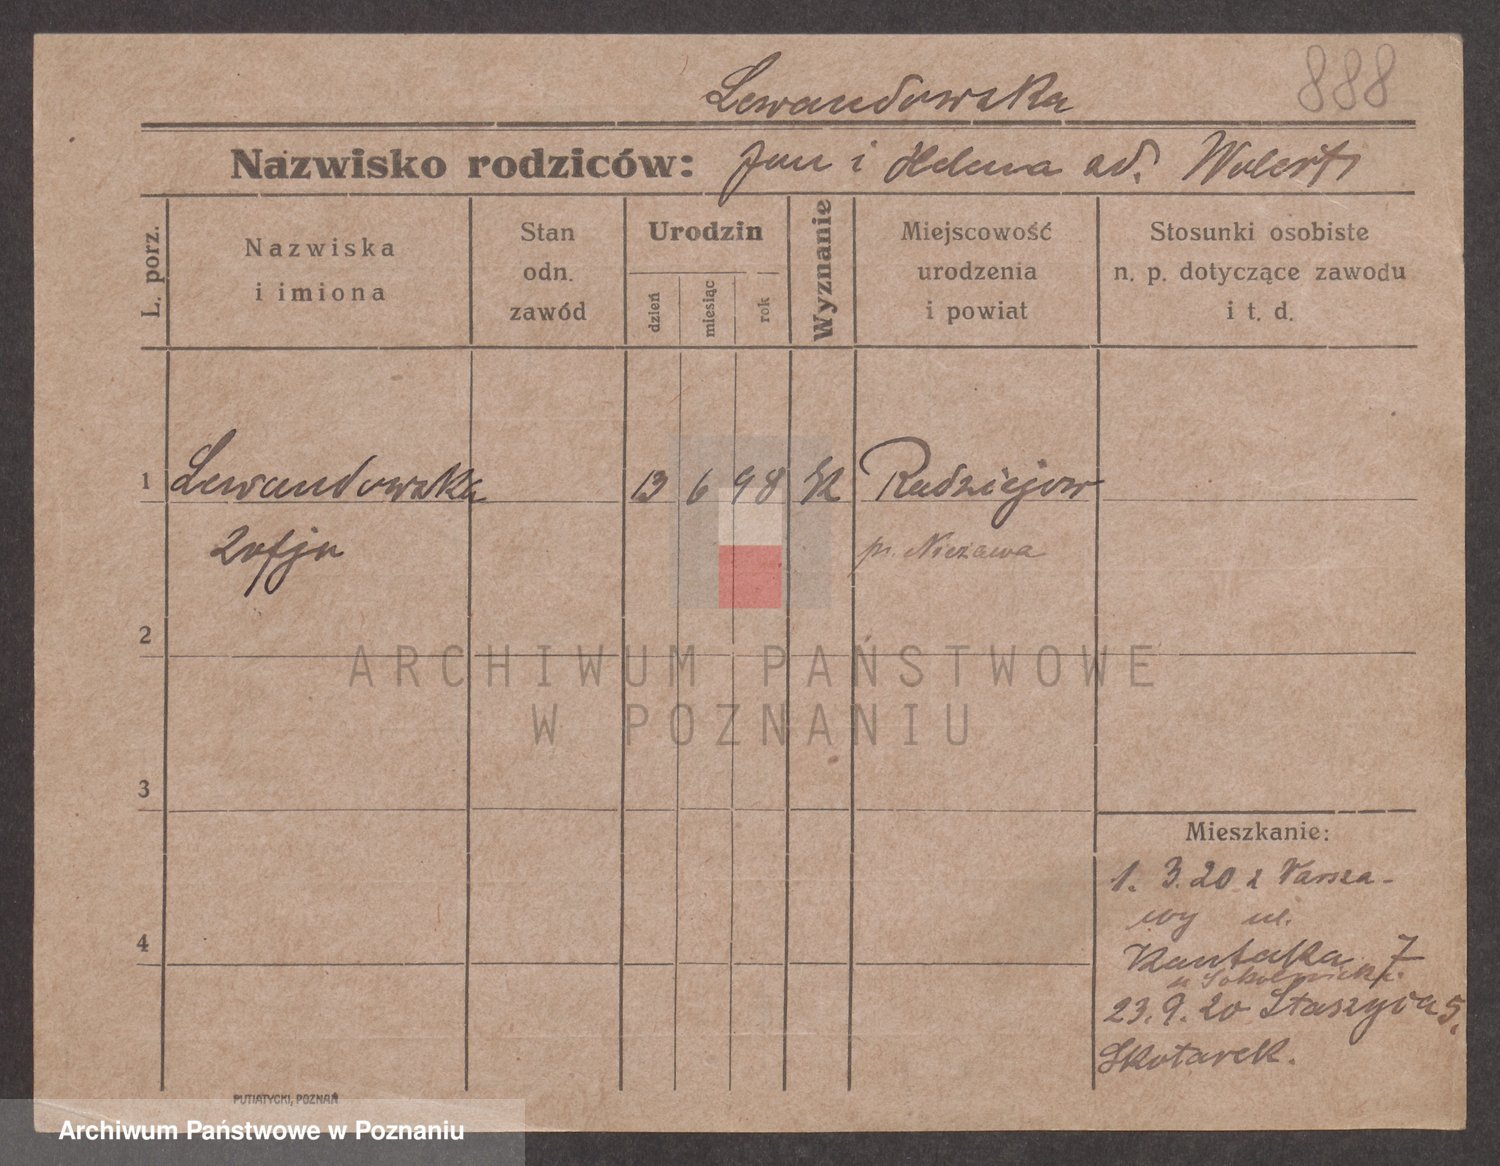 Lewandowska
888
Nazwisko rodziców: Jan i Helena ad. Wolert
L. porz.
Nazwiska
i imiona
Stan
odn.
zawód
Urodzin
dzień
miesiąc
rok
Wyznanie
Miejscowość
urodzenia
i powiat
Stosunki osobiste
n. p. dotyczące zawodu
i t. d.
1 Lewandowska 13 6 98 K Radziejow
Zofja
p. Nieżawa
2
ARCHIWUM PAŃSTWOWE
W POZNANIU
3
Mieszkanie:
1. 3. 20 z Warsza-
wy ul.
4
Kantaka 7
u
23. 9. 20 Staszyca 5.
Skotarek.
PUTIATYCKI, POZNAŃ
Archiwum Państwowe w Poznaniu